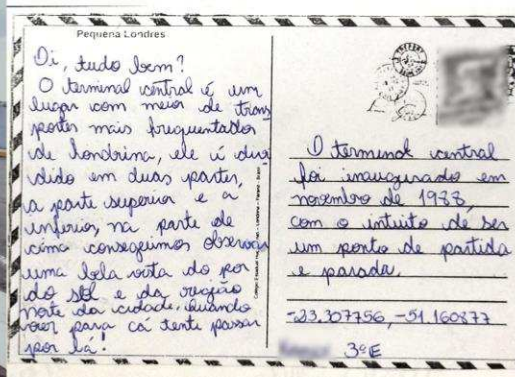 Pequena Londres
Oi, tudo bem?
O terminal central é um
lugar com meios de trans
portes mais frequentados
de Londrina, ele é divi
dido em duas partes,
a parte superior e a
inferior, na parte de
cima conseguimos observar
uma bela vista do por
do sol e da região
norte da cidade, quando
vier para cá tente passar
por lá!
O terminal central
foi inaugurado em
novembro de 1988,
com o intuito de ser
um ponto de partida
e parada.
-23.307756, -51.160877
3ºE